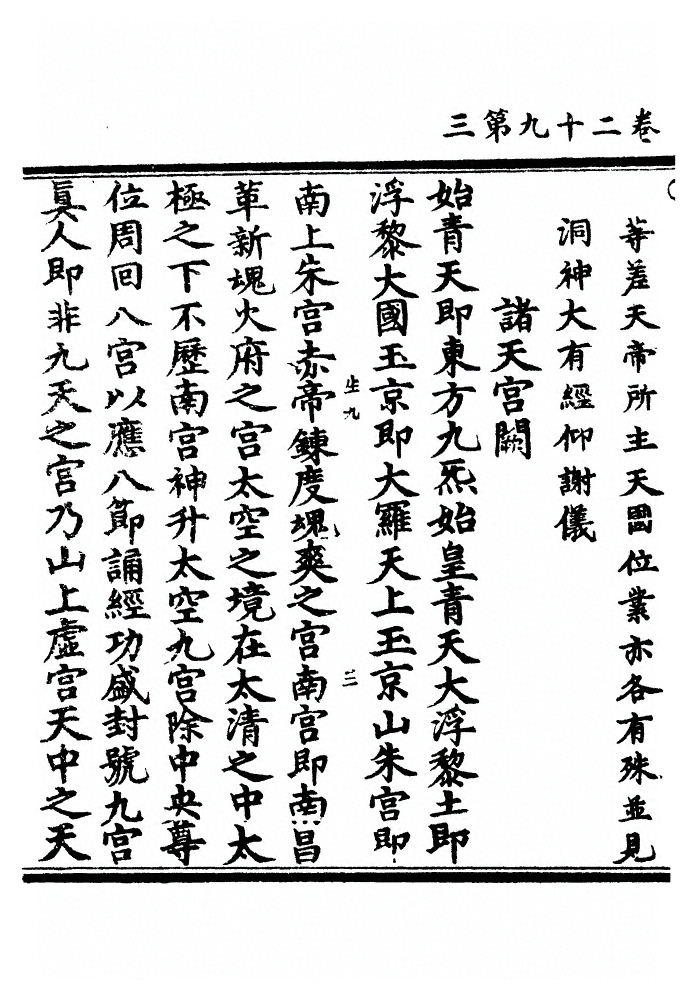 卷二十九第三
等差天帝所主天國位業亦各有殊並見
洞神大有經仰謝儀
諸天宮闕
始青天即東方九炁始皇青天大浮黎土即
浮黎大國玉京即大羅天上玉京山朱宮即
生九
三
南上朱宮赤帝鍊度魂爽之宮南宮即南昌
革新魂火府之宮太空之境在太清之中太
極之下不歷南宮神升太空九宮除中央尊
位周回八宮以應八節誦經功盛封號九宮
真人即非九天之宮乃山上虛宮天中之天